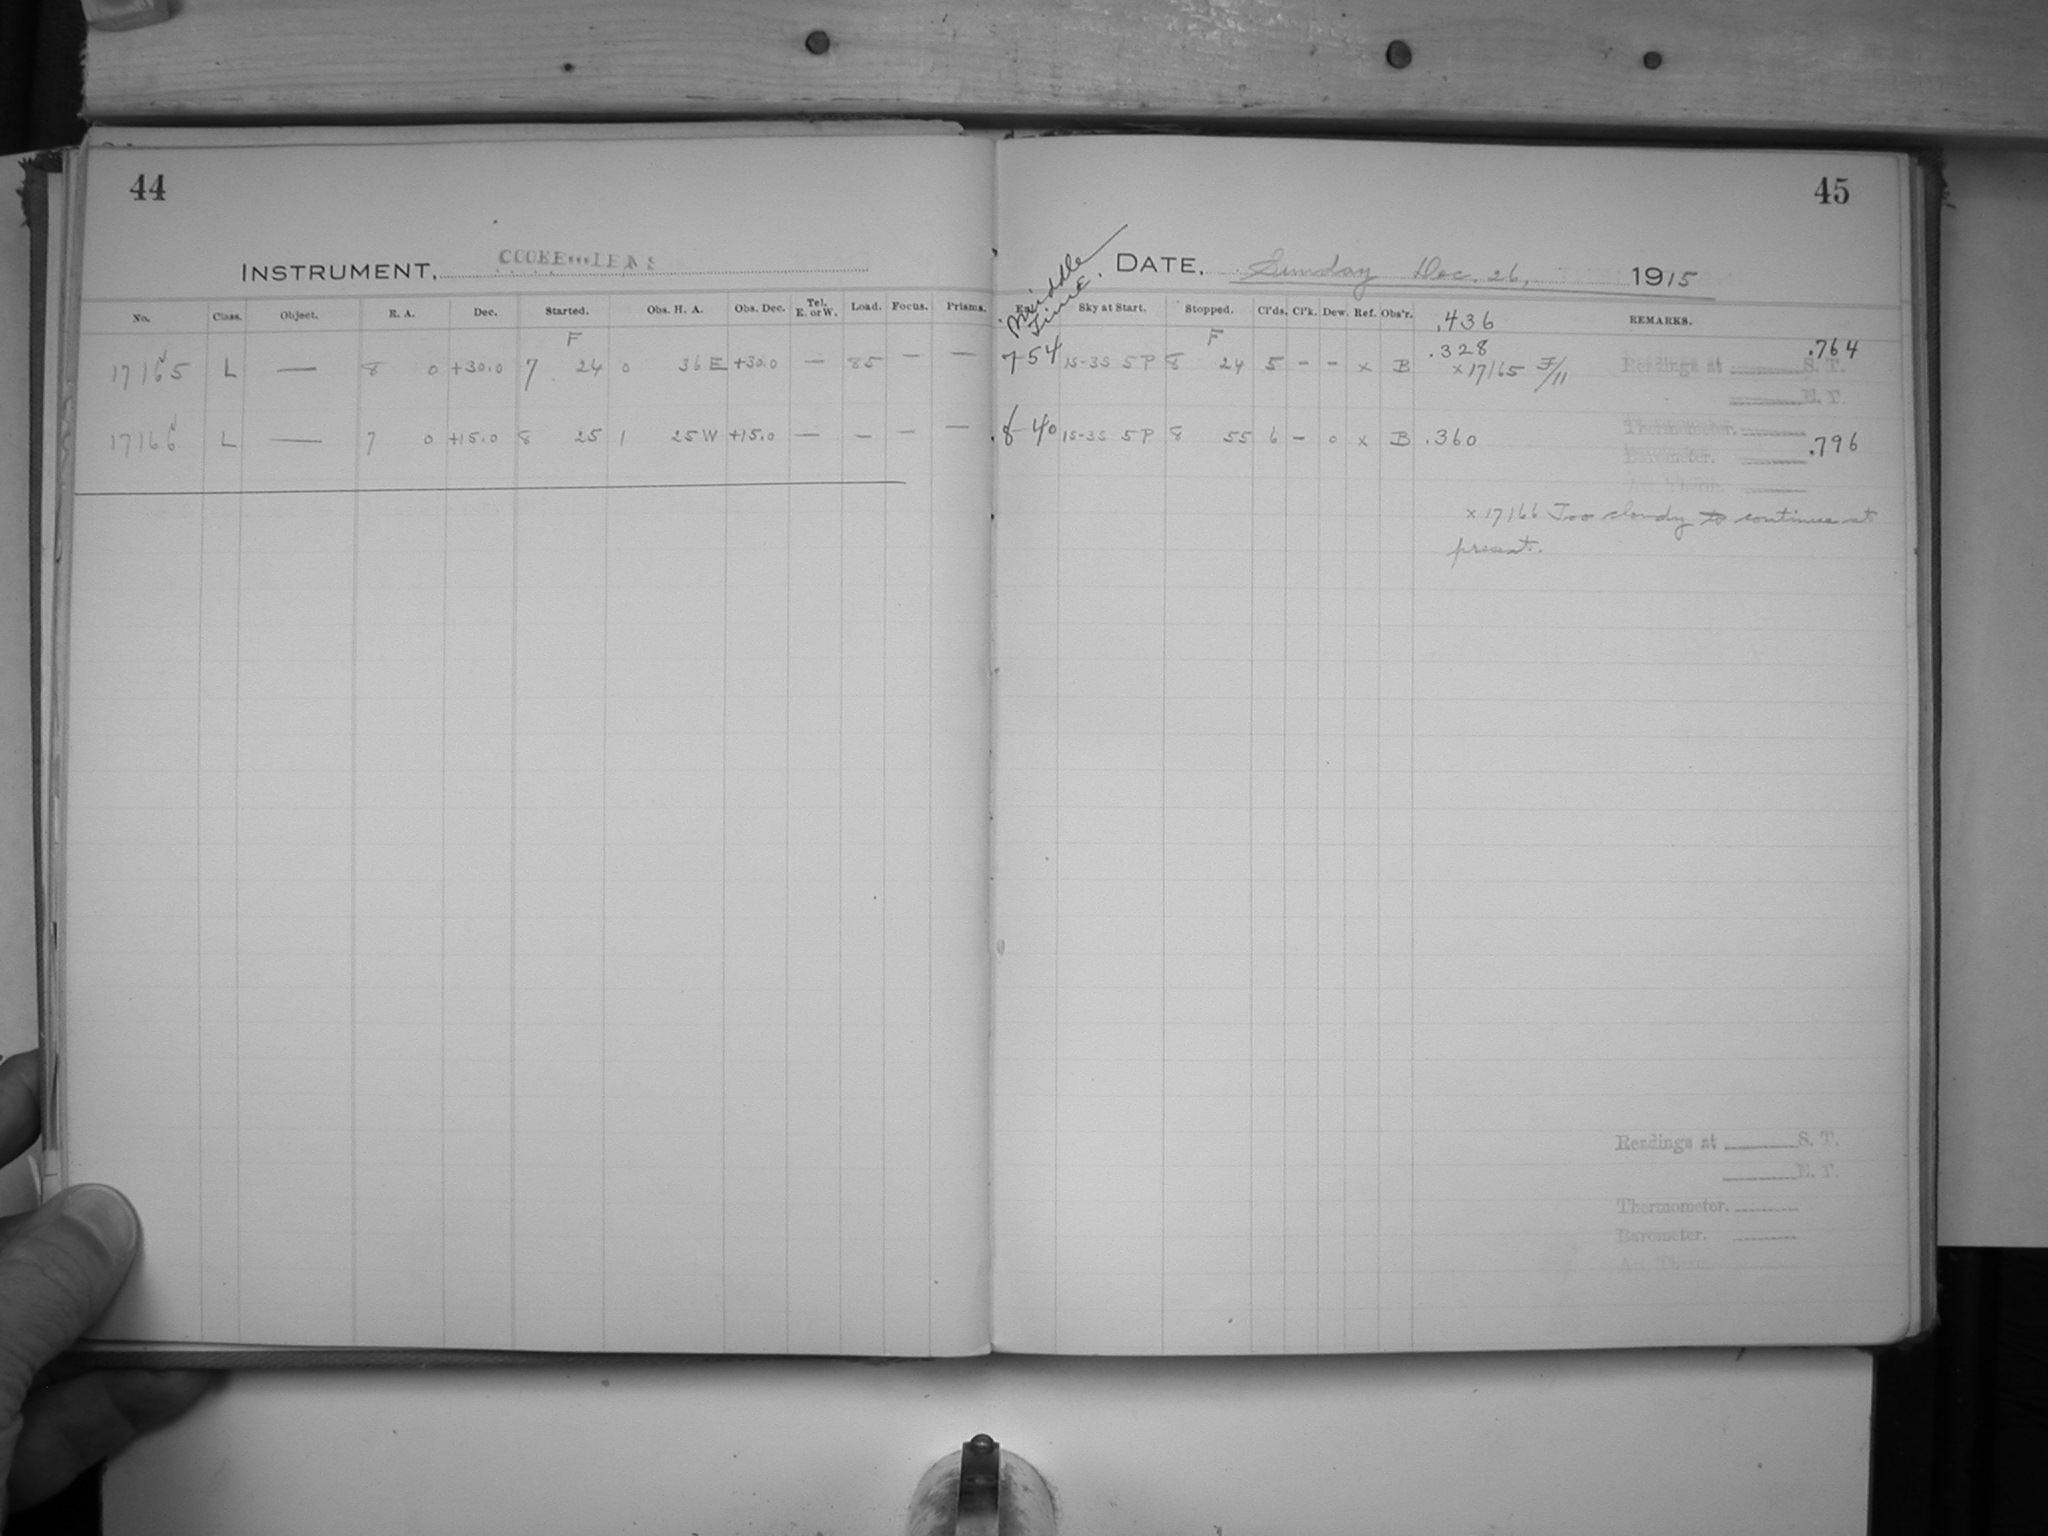 44
INSTRUMENT, COOKE LENS
No. Class. Object. R. A. Dec. Started. Obs. H. A. Obs. Dec. Tel. E. or W. Load. Focus. Prisms.
F
17165 L — 8 0 +30.0 7 24 0 36 E +30.0 — 85 — —
17166 L — 7 0 +15.0 8 25 1 25 W +15.0 — — — —
45
DATE, Sunday Dec. 26, 1915
Middle Time.
Sky at Start. Stopped. Cl'ds. Cl'k. Dew. Ref. Obs'r. REMARKS.
.436
F
7-54 1S-3S 5P 8 24 5 - - x B .328 .764
x 17165 F/11 Readings at S. T.
E. T.
8-40 1S-3S 5P 8 55 6 - 0 x B .360 .796
Thermometer.
Barometer.
x 17166 Too cloudy to continue at
present.
Readings at S. T.
E. T.
Thermometer.
Barometer.